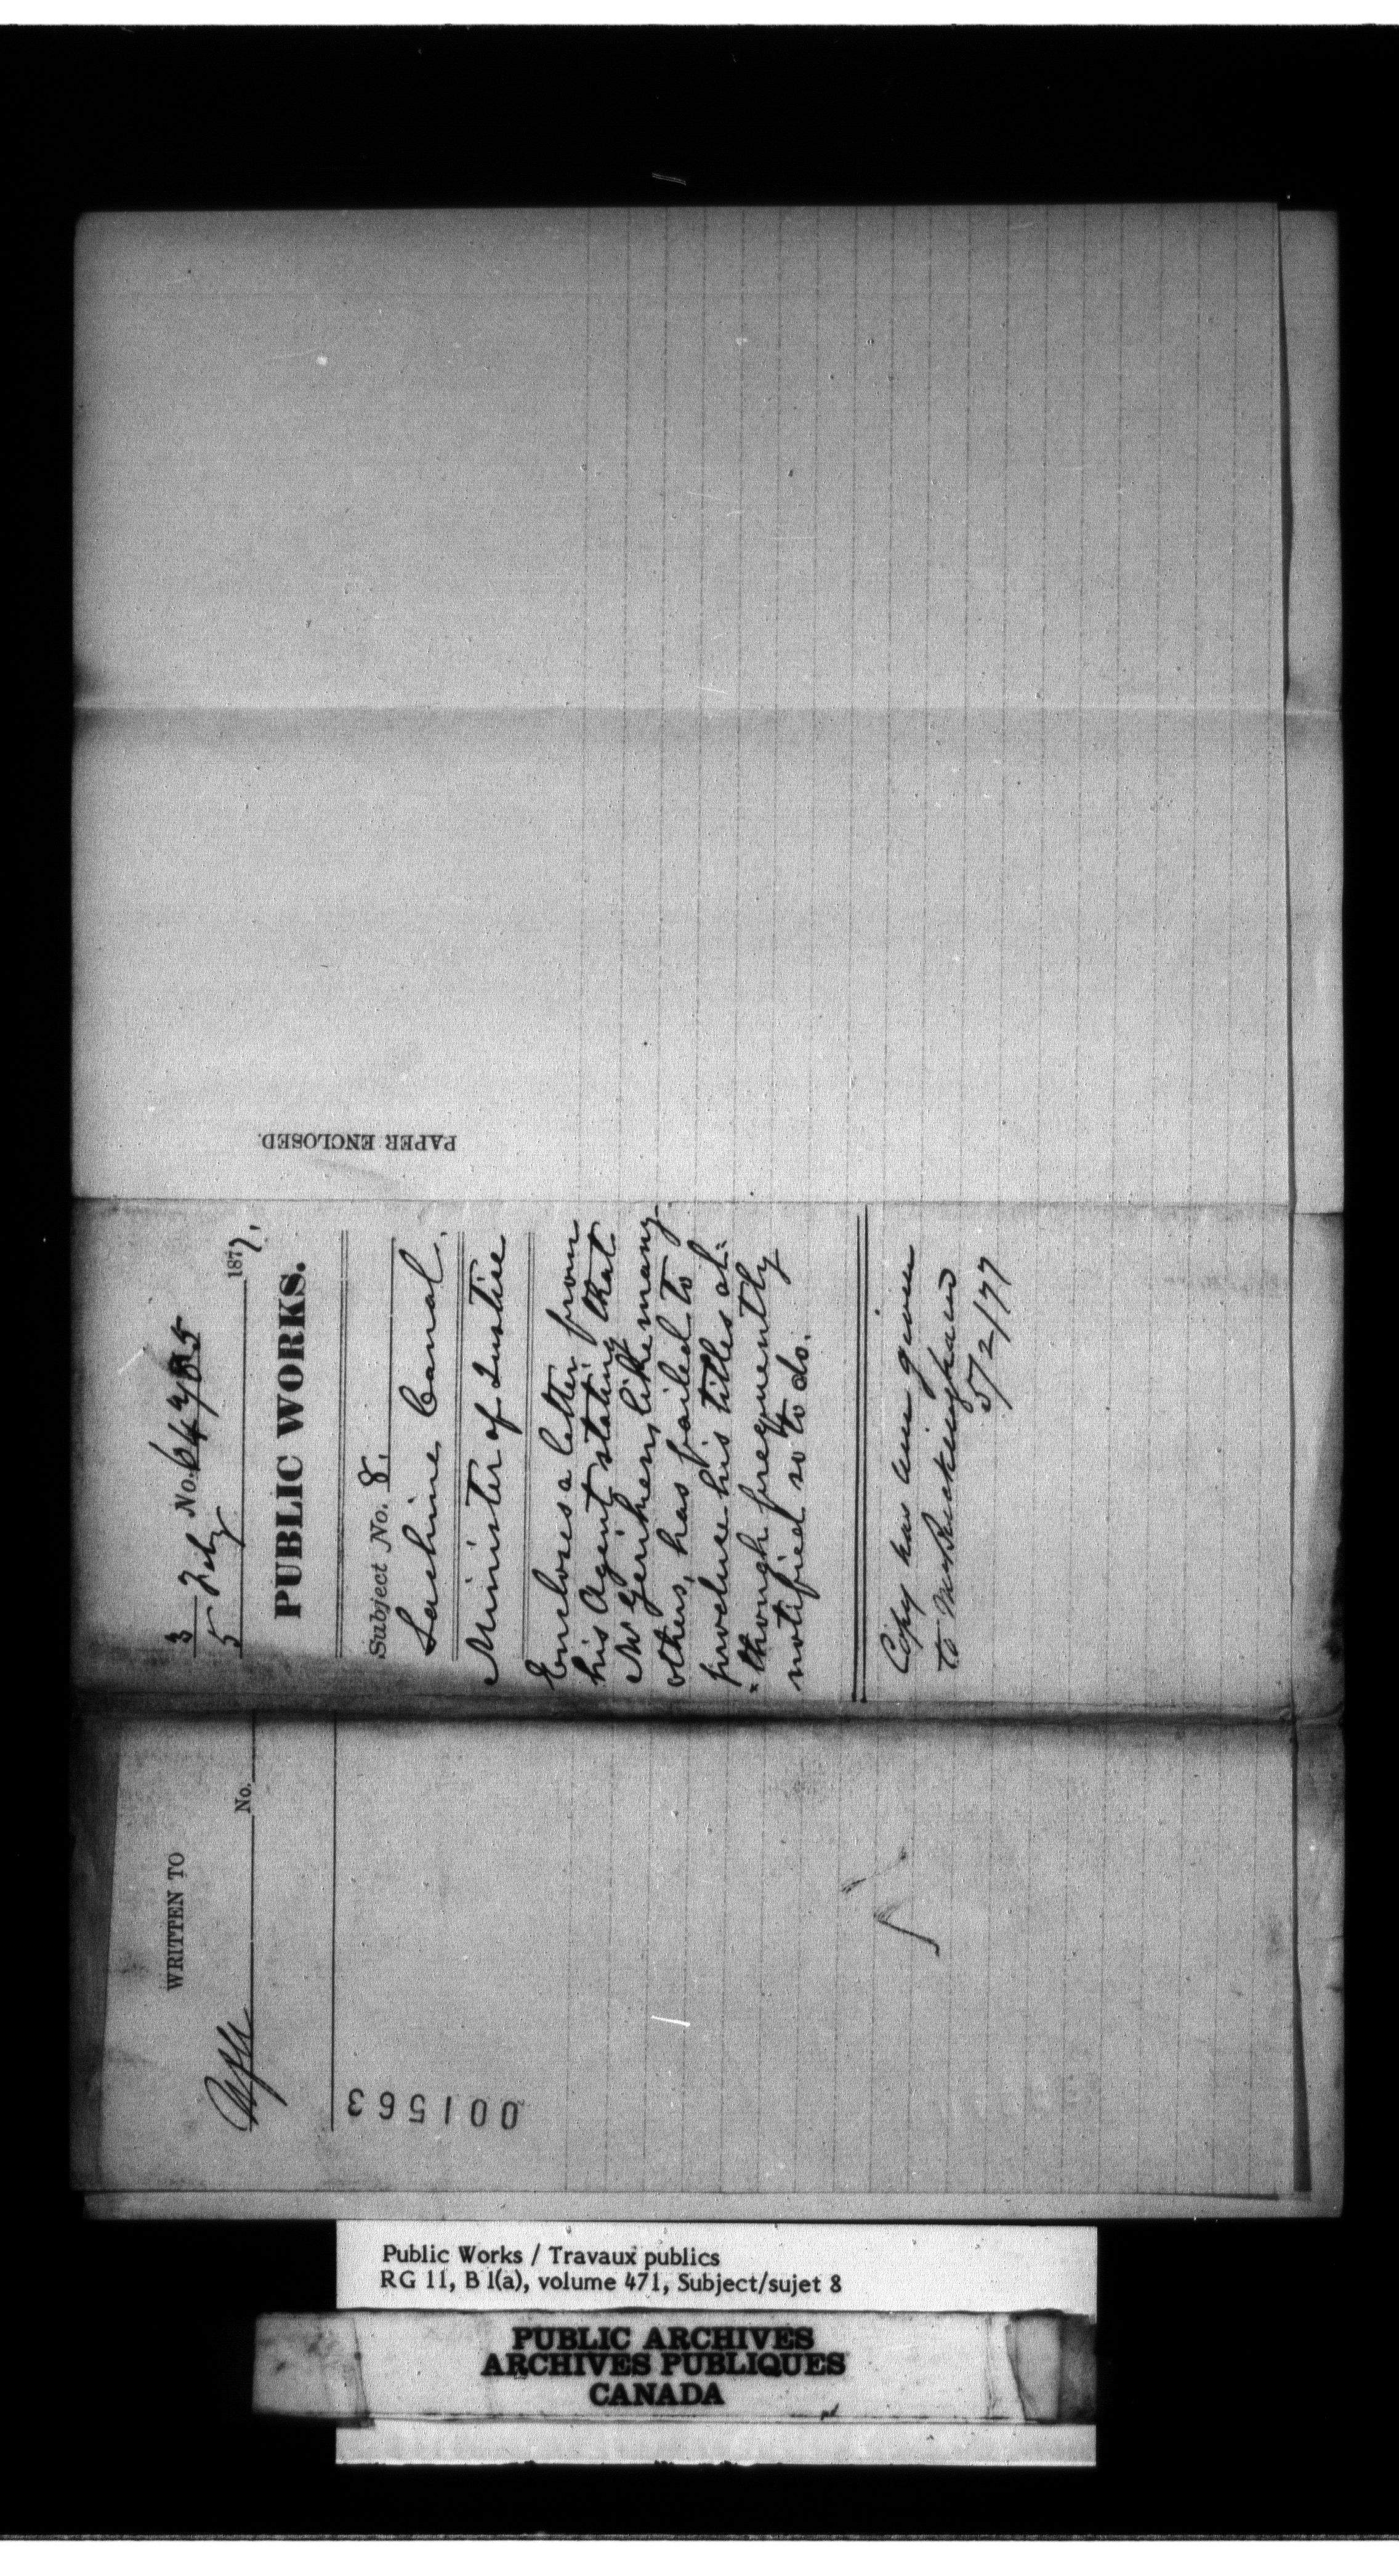 PAPER ENCLOSED.
3
5 Feby No. 64785
1877.
PUBLIC WORKS.
Subject No. 8.
Lachine Canal.
Minister of Justice
Encloses a letter from
his Agent stating that
Mr Gerriken, like many
others, has failed to
produce his titles al=
=though frequently
notified so to do.
Copy has been given
to Mr Buckingham
5/2/77
WRITTEN TO
No.
001563
Public Works / Travaux publics
RG 11, B 1(a), volume 471, Subject/sujet 8
PUBLIC ARCHIVES
ARCHIVES PUBLIQUES
CANADA